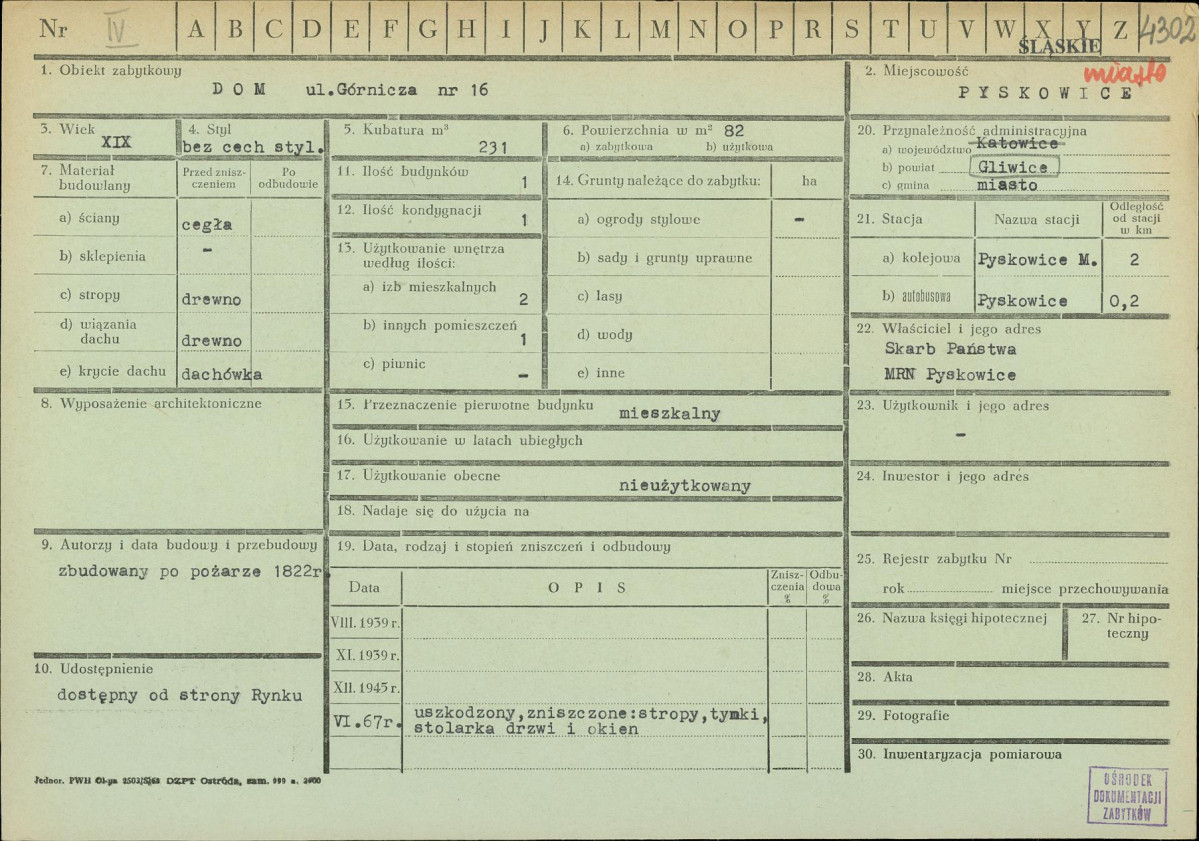 Nr IV A B C D E F G H I J K L M N O P R S T U V W X Y Z 4302
ŚLĄSKIE
1. Obiekt zabytkowy
DOM ul.Górnicza nr 16
2. Miejscowość miasto
PYSKOWICE
3. Wiek
XIX
4. Styl
bez cech styl.
5. Kubatura m³
231
6. Powierzchnia w m² 82
a) zabytkowa b) użytkowa
7. Materiał budowlany
Przed zniszczeniem
Po odbudowie
a) ściany cegła
b) sklepienia -
c) stropy drewno
d) wiązania dachu drewno
e) krycie dachu dachówka
11. Ilość budynków 1
12. Ilość kondygnacji 1
13. Użytkowanie wnętrza
według ilości:
a) izb mieszkalnych 2
b) innych pomieszczeń 1
c) piwnic -
14. Grunty należące do zabytku: ha
a) ogrody stylowe -
b) sady i grunty uprawne
c) lasy
d) wody
e) inne
20. Przynależność administracyjna
a) województwo Katowice
b) powiat Gliwice
c) gmina miasto
21. Stacja Nazwa stacji Odległość od stacji w km
a) kolejowa Pyskowice M. 2
b) autobusowa Pyskowice 0,2
22. Właściciel i jego adres
Skarb Państwa
MRN Pyskowice
8. Wyposażenie architektoniczne
15. Przeznaczenie pierwotne budynku mieszkalny
16. Użytkowanie w latach ubiegłych
17. Użytkowanie obecne nieużytkowany
18. Nadaje się do użycia na
23. Użytkownik i jego adres
-
24. Inwestor i jego adres
9. Autorzy i data budowy i przebudowy
zbudowany po pożarze 1822r
10. Udostępnienie
dostępny od strony Rynku
19. Data, rodzaj i stopień zniszczeń i odbudowy
Data OPIS Zniszczenia % Odbudowa %
VIII. 1939 r.
XI. 1939 r.
XII. 1945 r.
VI.67r. uszkodzony,zniszczone:stropy,tynki,
stolarka drzwi i okien
25. Rejestr zabytku Nr
rok miejsce przechowywania
26. Nazwa księgi hipotecznej
27. Nr hipoteczny
28. Akta
29. Fotografie
30. Inwentaryzacja pomiarowa
Jednor. PWH DZPT Ostróda, zam. 999 n.
OŚRODEK
DOKUMENTACJI
ZABYTKÓW